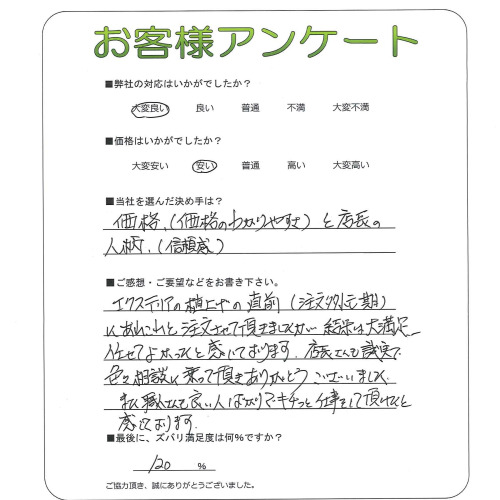 お客様アンケート
■弊社の対応はいかがでしたか?
大変良い 良い 普通 不満 大変不満
■価格はいかがでしたか?
大変安い 安い 普通 高い 大変高い
■当社を選んだ決め手は?
価格、(価格のわかりやすさ)と店長の
人柄、(信頼感)
■ご感想・ご要望などをお書き下さい。
エクステリアの値上げの直前(注文殺到期)
にあれこれと注文させて頂きましたが 結果は大満足
任せてよかったと感じております。店長さんも誠実で
色々相談に乗って頂きありがとうございました
また職人さんも良い人ばかりでキチッと仕事をして頂けたと
感じております。
■最後に、ズバリ満足度は何%ですか?
120 %
ご協力頂き、誠にありがとうございました。